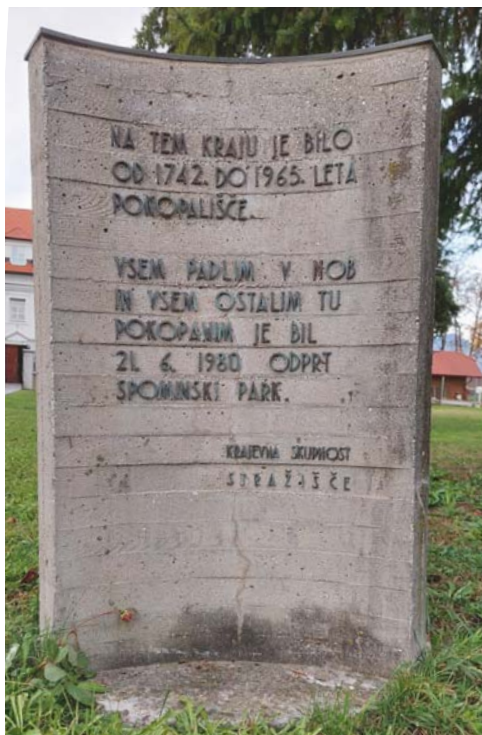 NA TEM KRAJU JE BILO
OD 1742. DO 1965. LETA
POKOPALIŠČE.
VSEM PADLIM V NOB
IN VSEM OSTALIM TU
POKOPANIM JE BIL
21. 6. 1980 ODPRT
SPOMINSKI PARK.
KRAJEVNA SKUPNOST
STRAŽIŠČE